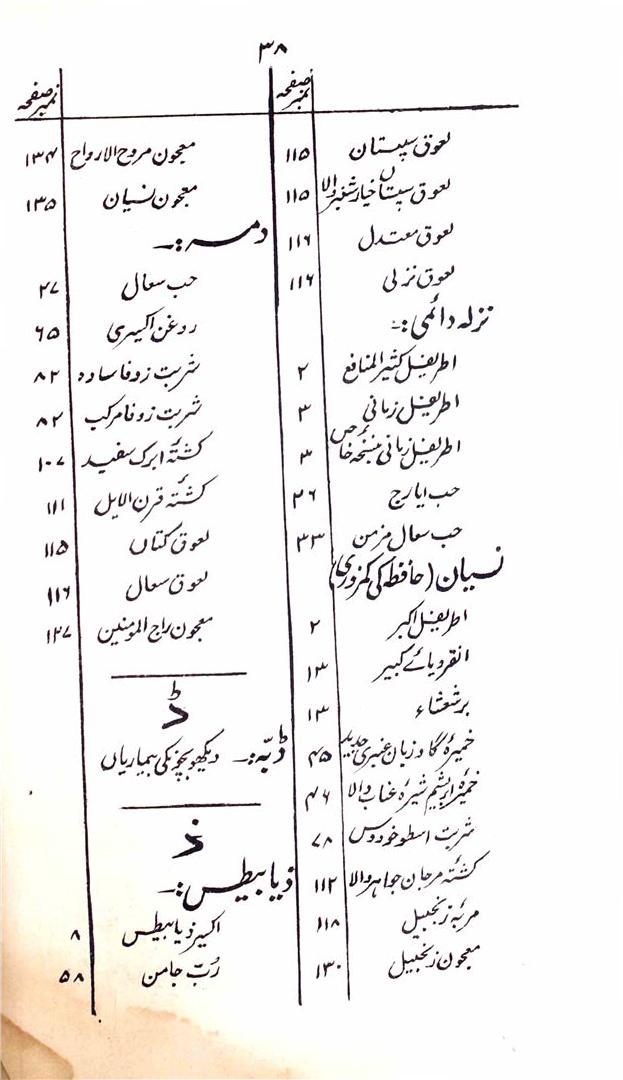 ۳۸
نمبر صفحہ
لعوق سپستان ۱۱۵
لعوق سپستاں خیار شنبر والا ۱۱۵
لعوق معتدل ۱۱۶
لعوق نزلی ۱۱۶
نزلہ دائمی :-
اطریفل کثیر المنافع ۲
اطریفل زمانی ۳
اطریفل زمانی بنسخۂ خاص ۳
حب ایارج ۲۶
حب سعال مزمن ۳۳
نسیان (حافظہ کی کمزوری)
اطریفل اکبر ۲
انقرویائے کبیر ۱۳
برشعشاء ۱۳
خمیرہ گاوزبان عنبری جدید ۴۵
خمیرہ ابریشم شیرہ عناب والا ۴۶
شربت اسطوخودوس ۷۸
کشتہ مرجان جواہر والا ۱۱۲
مربہ زنجبیل ۱۱۸
معجون زنجبیل ۱۳۰
نمبر صفحہ
معجون مروح الارواح ۱۳۴
معجون نسیان ۱۳۵
دمہ :-
حب سعال ۲۷
روغن اکسیری ۶۵
شربت زوفا سادہ ۸۲
شربت زوفا مرکب ۸۲
کشتۂ ابرک سفید ۱۰۷
کشتۂ قرن الایل ۱۱۱
لعوق کتاں ۱۱۵
لعوق سعال ۱۱۶
معجون راح المومنین ۱۳۷
ڈ
ڈبّہ :- دیکھو بچوں کی بیماریاں
ذ
ذیابیطس :-
اکسیر ذیابیطس ۸
رُبّ جامن ۵۸